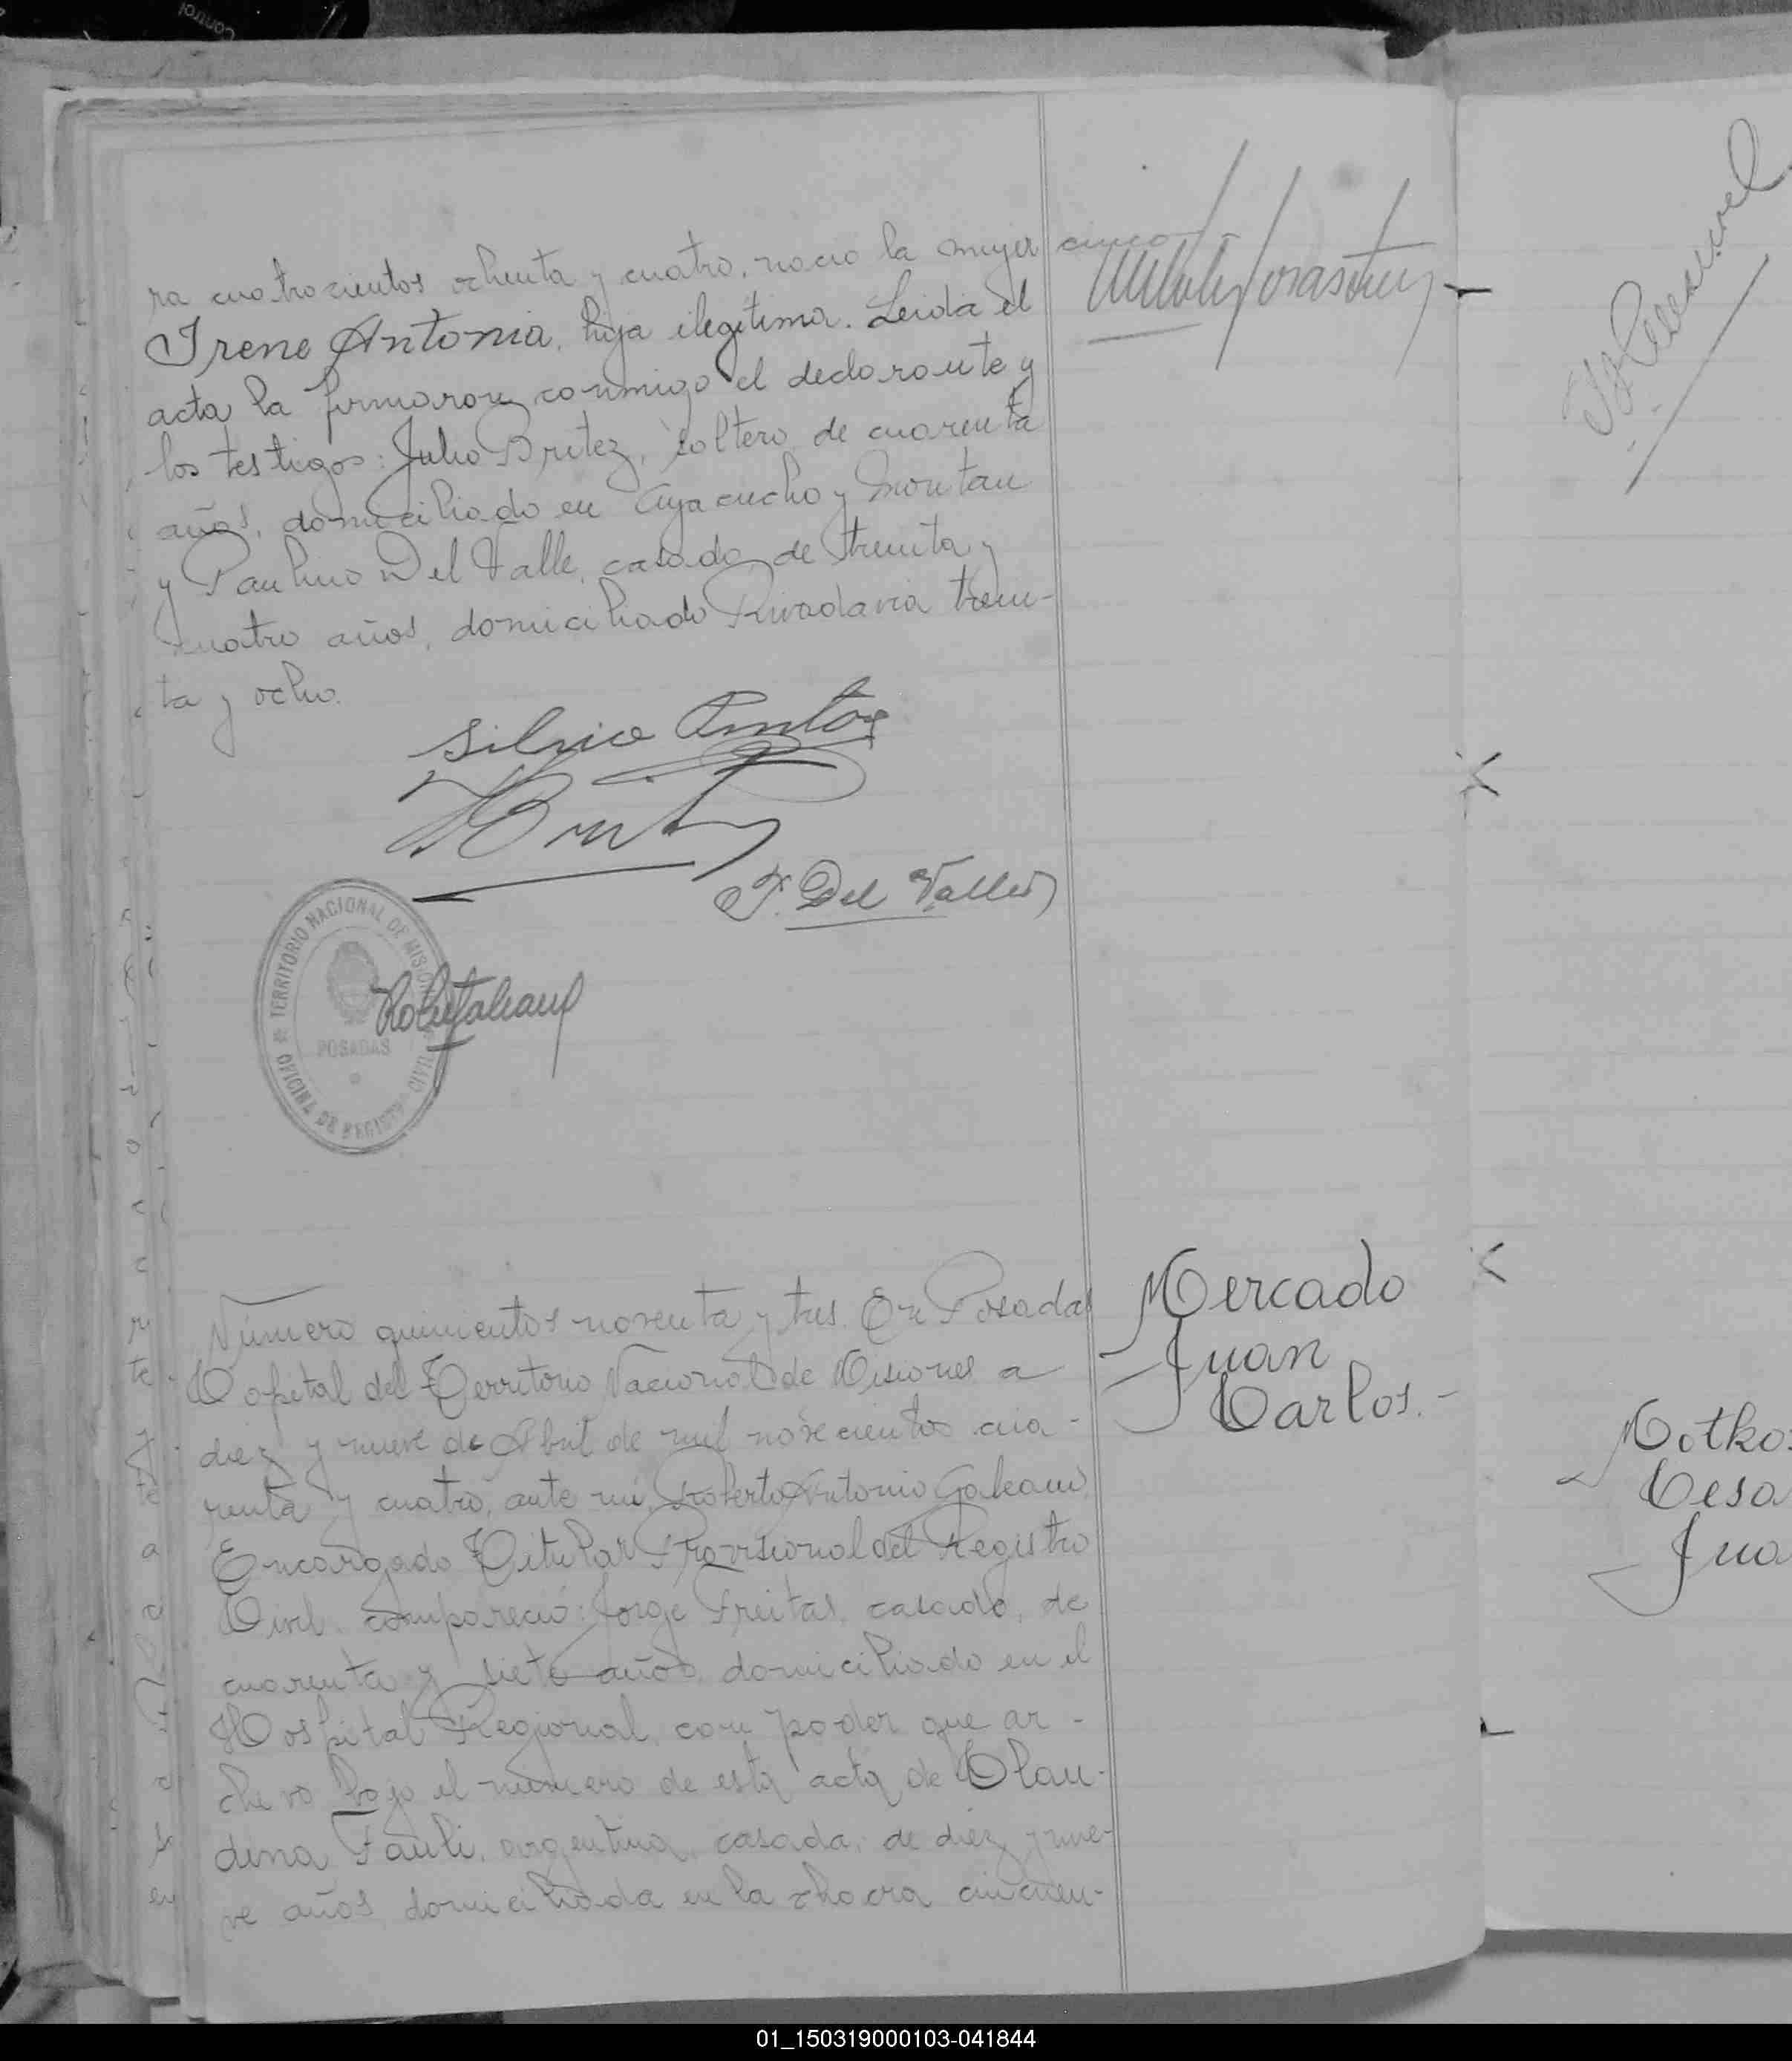 control
ra cuatrocientos ochenta y cuatro, nacio la mujer
Irene Antonia, hija ilegítima. Leida el
acta la firmaron conmigo el declarante y
los testigos: Julio Britez, soltero, de cuarenta
años, domiciliado en Ayacucho y
y Paulino Del Valle, casado, de treinta y
cuatro años, domiciliado Rivadavia trein-
ta y ocho.
Silvio
P. Del Valle
TERRITORIO NACIONAL DE MISIONES
POSADAS
OFICINA DE REGISTRO CIVIL
Número quinientos noventa y tres. En Posadas
Capital del Territorio Nacional de Misiones a
diez y nueve de Abril de mil novecientos cua-
renta y cuatro, ante mí, Roberto Antonio Galeano,
Encargado Titular Provisional del Registro
Civil, compareció: Jorge Freitas, casado, de
cuarenta y siete años, domiciliado en el
Hospital Regional, con poder que ar-
chivo bajo el número de esta acta de Clau-
dina Fauli, argentina, casada, de diez y nue-
ve años domiciliada en la chacra cincuen-
Mercado
Juan
Carlos.-
Motko
Cesa
Jua
01_150319000103-041844